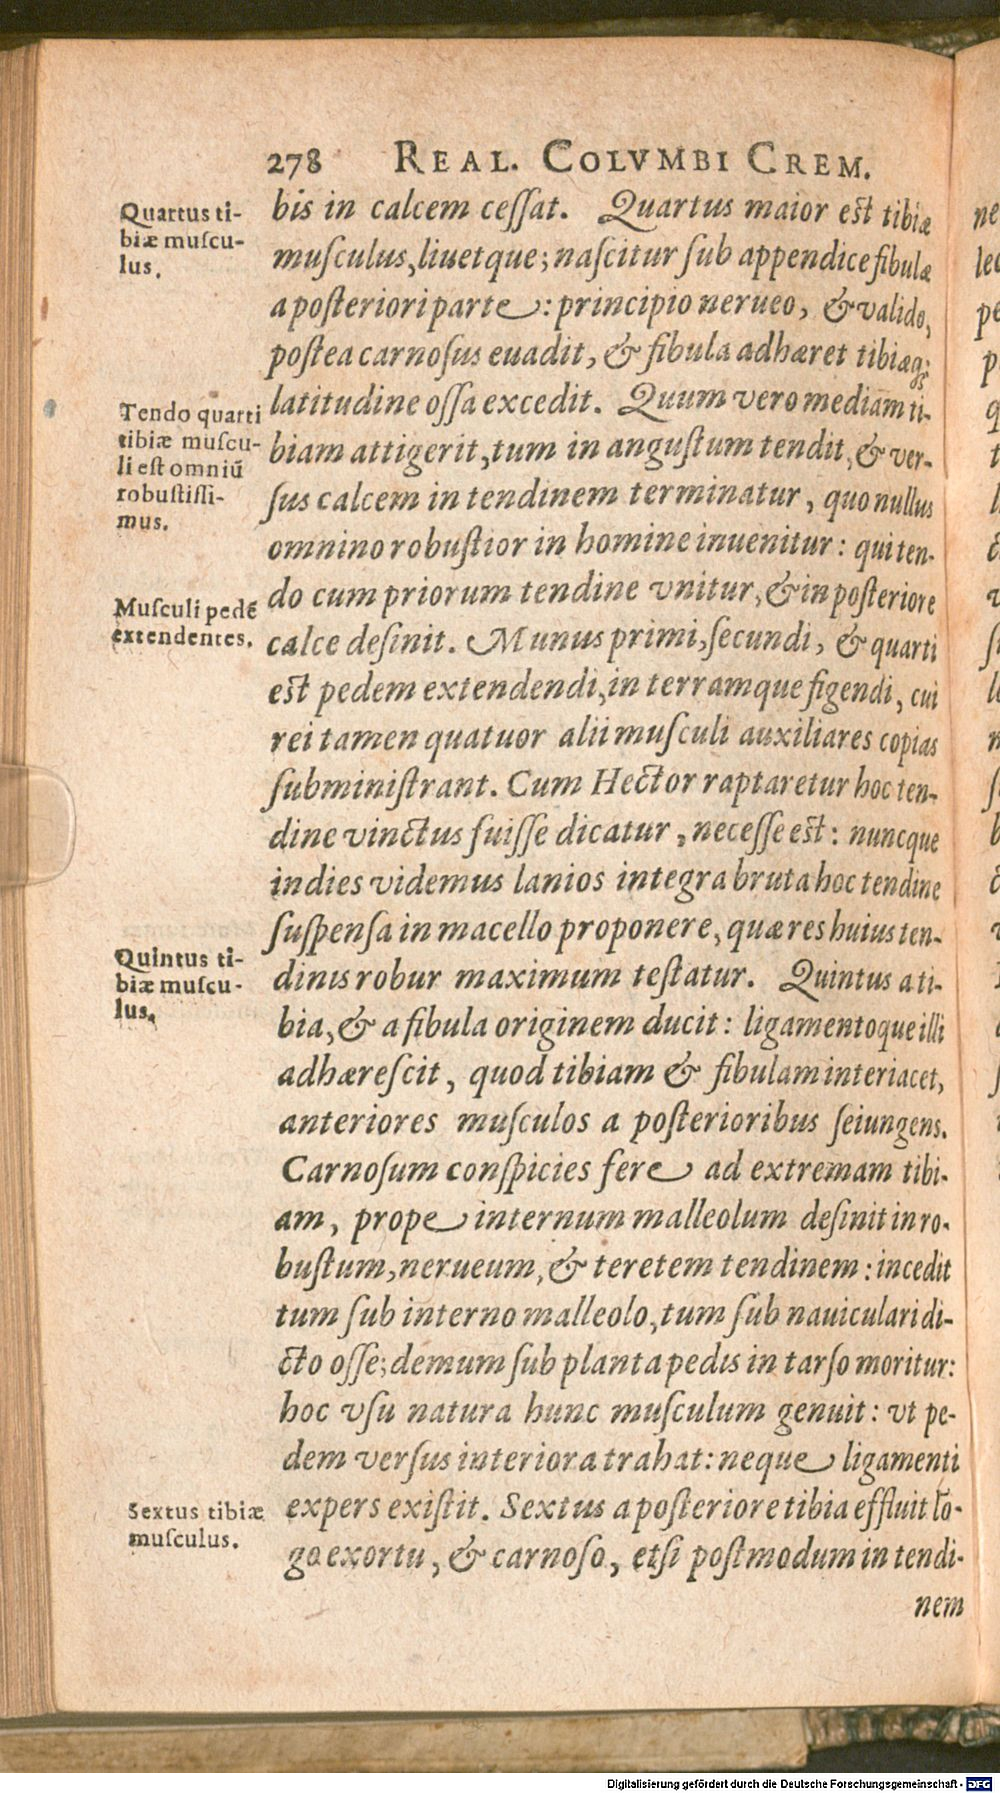 278 REAL. COLVMBI CREM.
Quartus ti-
biæ muſcu-
lus.
Tendo quarti
tibiæ muſcu-
li eſt omniū
robuſtiſſi-
mus.
Muſculi pedē
extendentes.
Quintus ti-
biæ muſcu-
lus.
Sextus tibiæ
muſculus.
bis in calcem ceſſat. Quartus maior eſt tibiæ
muſculus, liuetque; naſcitur ſub appendice fibulæ
a poſteriori parte: principio nerueo, & valido,
poſtea carnoſus euadit, & fibula adhæret tibiæq;
latitudine oſſa excedit. Quum vero mediam ti-
biam attigerit, tum in anguſtum tendit, & ver-
ſus calcem in tendinem terminatur, quo nullus
omnino robuſtior in homine inuenitur: qui ten-
do cum priorum tendine vnitur, & in poſteriore
calce deſinit. Munus primi, ſecundi, & quarti
eſt pedem extendendi, in terramque figendi, cui
rei tamen quatuor alii muſculi auxiliares copias
ſubminiſtrant. Cum Hector raptaretur hoc ten-
dine vinctus fuiſſe dicatur, neceſſe eſt: nuncque
indies videmus lanios integra bruta hoc tendine
ſuſpenſa in macello proponere, quæ res huius ten-
dinis robur maximum teſtatur. Quintus a ti-
bia, & a fibula originem ducit: ligamentoque illi
adhæreſcit, quod tibiam & fibulam interiacet,
anteriores muſculos a poſterioribus ſeiungens.
Carnoſum conſpicies fere ad extremam tibi-
am, prope internum malleolum deſinit in ro-
buſtum, nerueum, & teretem tendinem: incedit
tum ſub interno malleolo, tum ſub nauiculari di-
cto oſſe; demum ſub planta pedis in tarſo moritur:
hoc vſu natura hunc muſculum genuit: vt pe-
dem verſus interiora trahat: neque ligamenti
expers exiſtit. Sextus a poſteriore tibia effluit lō-
go exortu, & carnoſo, etſi poſtmodum in tendi-
nem
Digitalisierung gefördert durch die Deutsche Forschungsgemeinschaft - DFG